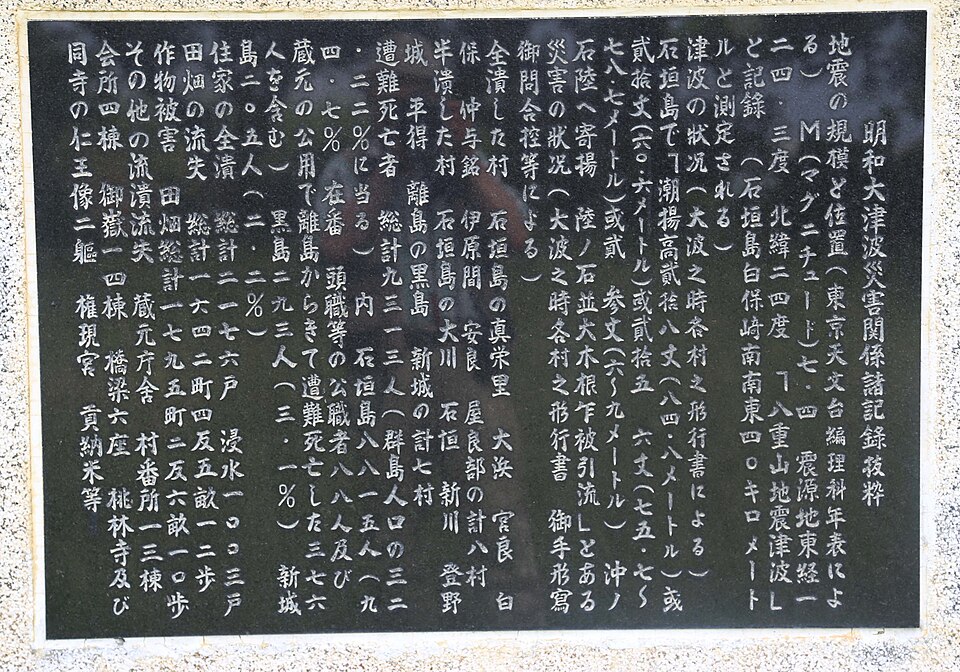 明和大津波災害関係諸記録抜粋
地震の規模と位置(東京天文台編理科年表によ
る) M(マグニチュード)七・四 震源地東経一
二四・三度 北緯二四度 「八重山地震津波」
と記録 (石垣島白保崎南南東四〇キロメート
ルと測定される)
津波の状況(大波之時各村之形行書による)
石垣島で「潮揚高貳拾八丈(八四・八メートル)或
貳拾丈(六〇・六メートル)或貳拾五 六丈(七五・七〜
七八七メートル)或貳 参丈(六〜九メートル) 沖ノ
石陸へ寄揚 陸ノ石並大木根乍被引流」とある
災害の状況(大波之時各村之形行書 御手形寫
御問合控等による)
全潰した村 石垣島の真栄里 大浜 宮良 白
保 仲与銘 伊原間 安良 屋良部の計八村
半潰した村 石垣島の大川 石垣 新川 登野
城 平得 離島の黒島 新城の計七村
遭難死亡者 総計九三一三人(群島人口の三二
・二二%に当る) 内 石垣島八八一五人(九
四・七% 在番 頭職等の公職者八八人及び
蔵元の公用で離島からきて遭難死亡した三七六
人を含む) 黒島二九三人(三・一%) 新城
島二〇五人(二・二%)
住家の全潰 総計二一七六戸 浸水一〇〇三戸
田畑の流失 総計一六四二町四反五畝一二歩
作物被害 田畑総計一七九五町二反六畝一〇歩
その他の流潰流失 蔵元庁舎 村番所一三棟
会所四棟 御嶽一四棟 橋梁六座 桃林寺及び
同寺の仁王像二軀 権現宮 貢納米等